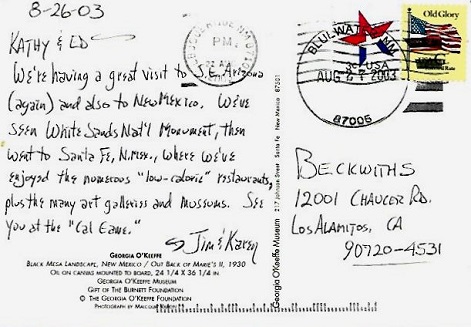 8-26-03
KATHY & ED
WE'RE HAVING A GREAT VISIT TO S.E. ARIZONA
(AGAIN) AND ALSO TO NEW MEXICO. WE'VE
SEEN WHITE SANDS NAT'L MONUMENT, THEN
WENT TO SANTA FE, N.MEX., WHERE WE'VE
ENJOYED THE NUMEROUS "LOW-CALORIE" RESTAURANTS,
PLUS THE MANY ART GALLERIES AND MUSEUMS. SEE
YOU AT THE "CAL GAME."
JIM & KAREN
GEORGIA O'KEEFFE
BLACK MESA LANDSCAPE, NEW MEXICO / OUT BACK OF MARIE'S II, 1930
OIL ON CANVAS MOUNTED TO BOARD, 24 1/4 X 36 1/4 IN.
GEORGIA O'KEEFFE MUSEUM
GIFT OF THE BURNETT FOUNDATION
© THE GEORGIA O'KEEFFE FOUNDATION
PHOTOGRAPH BY MALCOLM
Georgia O'Keeffe Museum 217 Johnson Street Santa Fe New Mexico 87501
PM
USA
AUG 27 2003
87005
Old Glory
BECKWITHS
12001 CHAUCER RD.
LOS ALAMITOS, CA
90720-4531